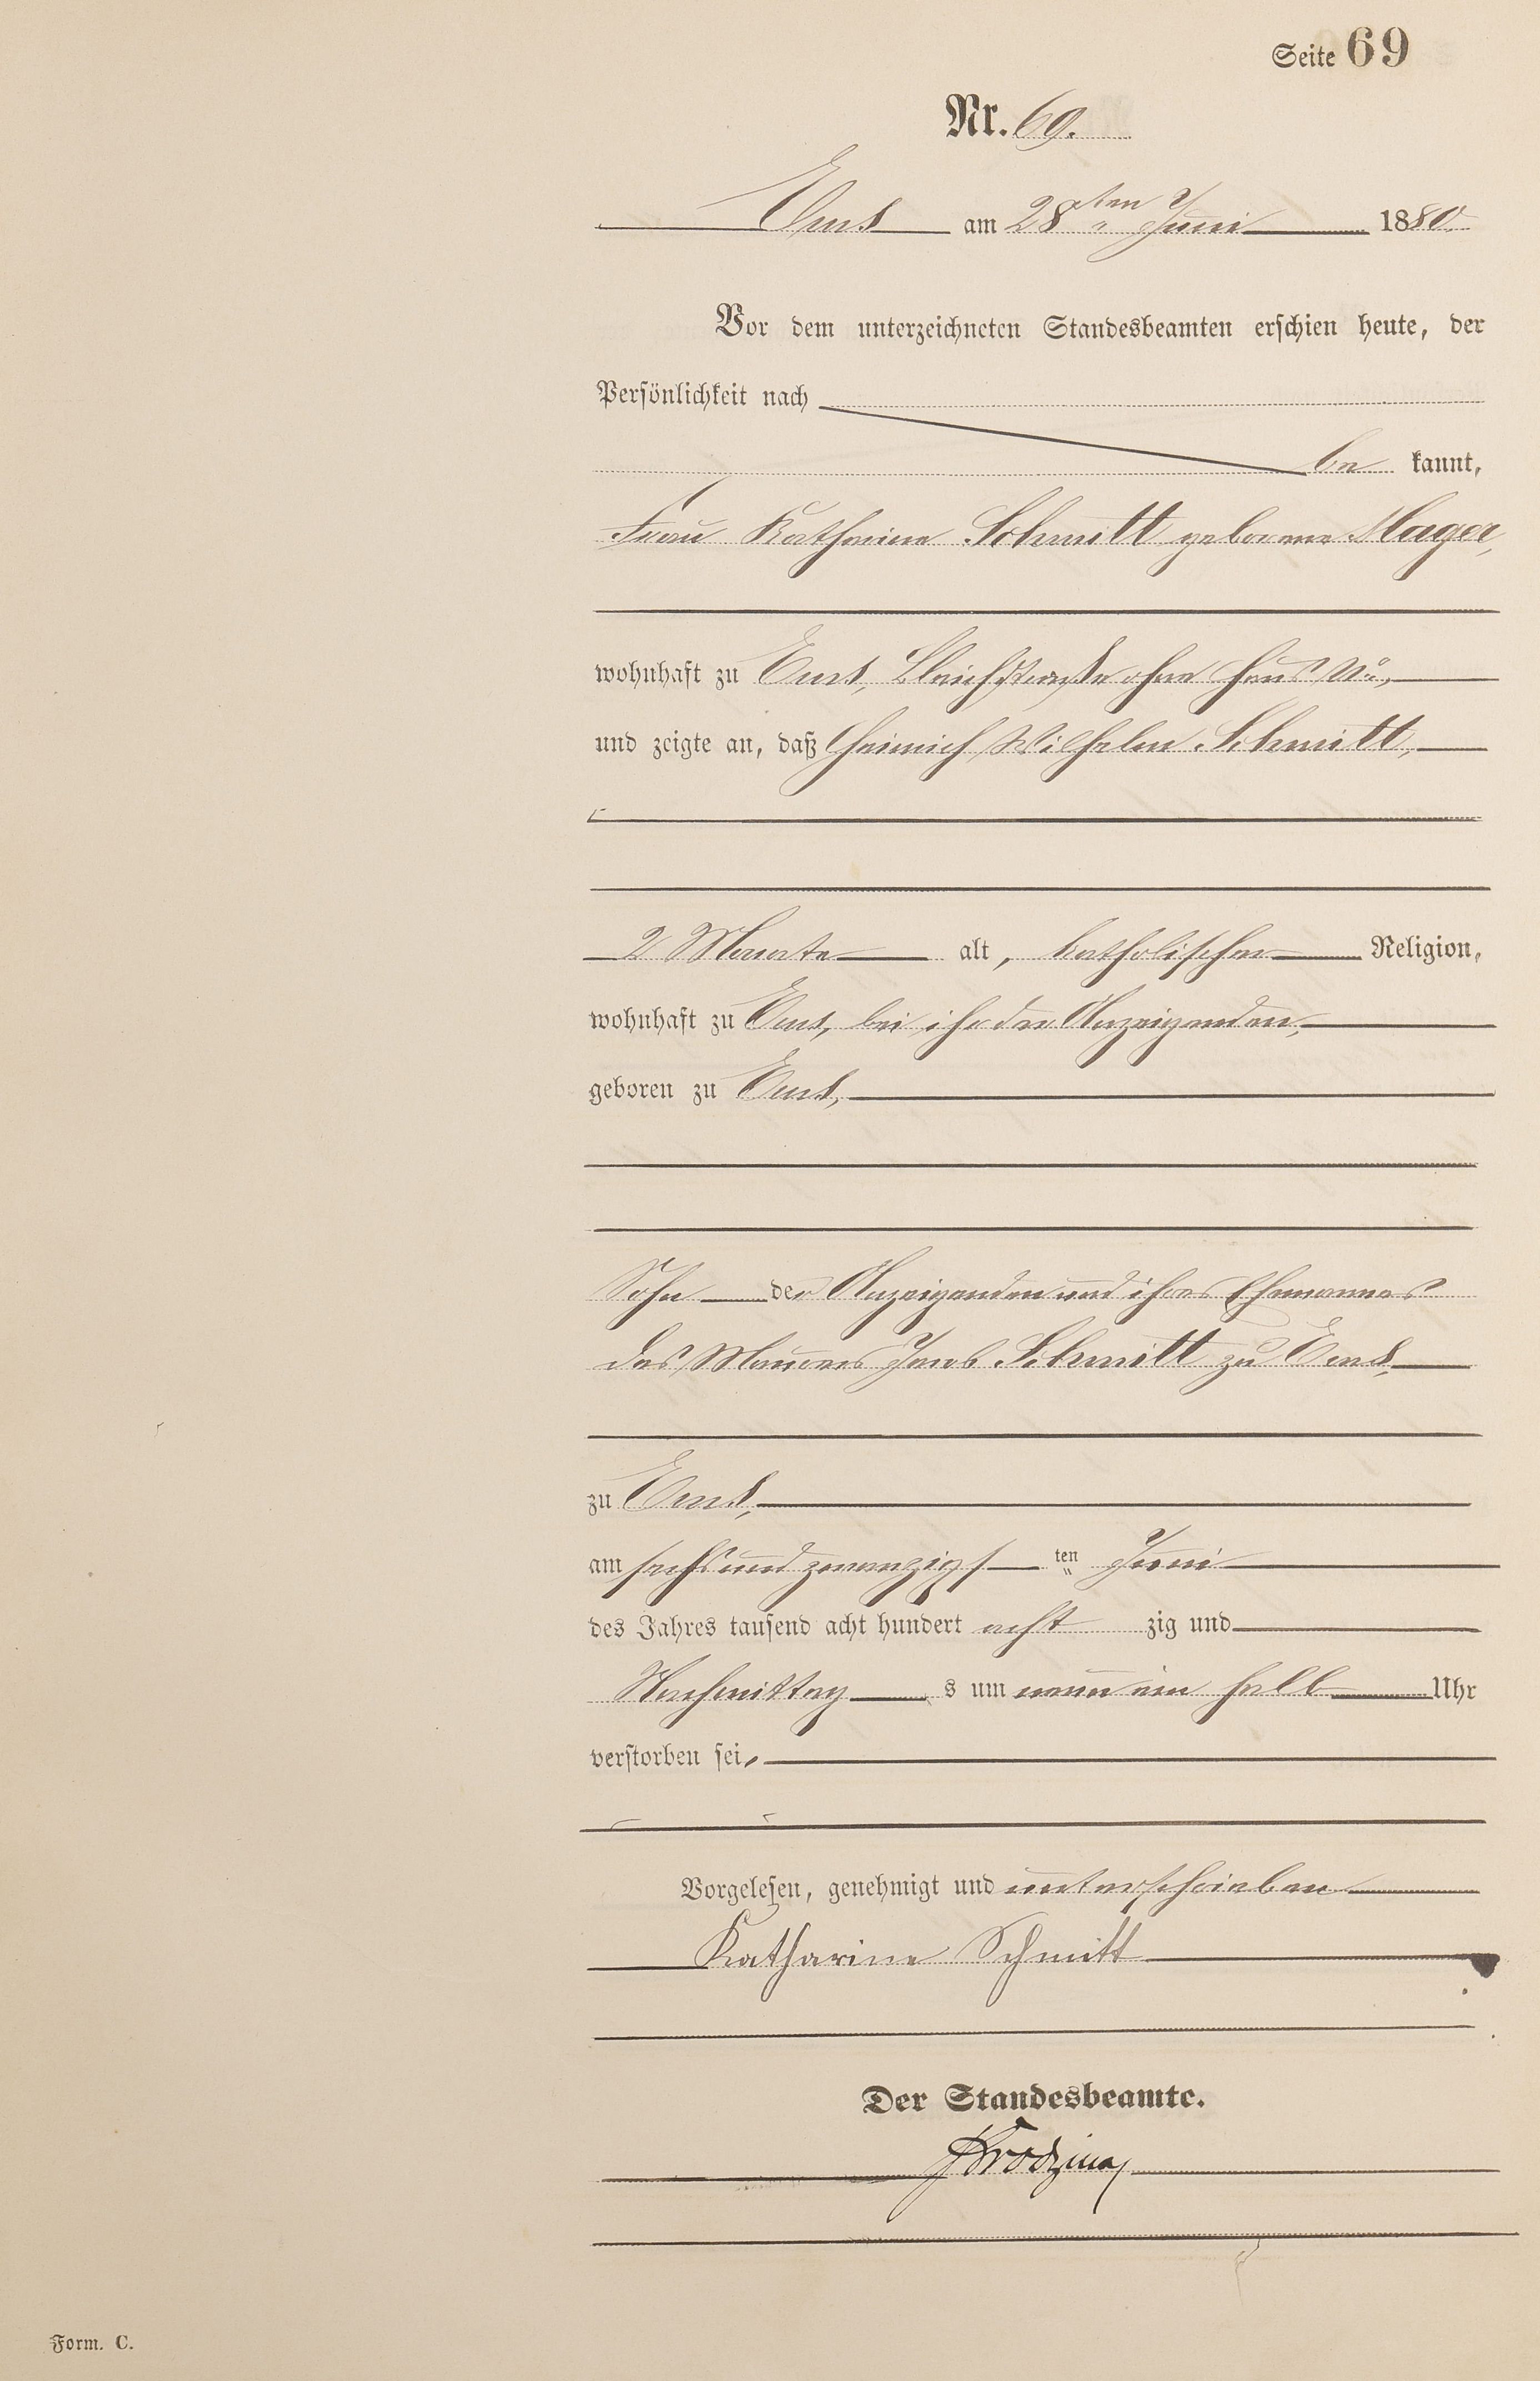 Seite 69
Nr. 69.
Ems am 28ten Juni 1880.
Vor dem unterzeichneten Standesbeamten erschien heute, der
Persönlichkeit nach
be kannt,
Frau Katharina Schmitt geborene Mager,
wohnhaft zu Ems, Bleichstraße ohne Haus No,
und zeigte an, daß Heinrich Wilhelm Schmitt,
2 Monate alt, katholischer Religion,
wohnhaft zu Ems, bei ihr der Anzeigenden,
geboren zu Ems,
Sohn der Anzeigenden und ihres Ehemannes
des Maurers Jacob Schmitt zu Ems,
zu Ems,
am sechs und zwanzigsten Juni
des Jahres tausend acht hundert acht zig und
Nachmittag s um neun ein halb Uhr
verstorben sei,
Vorgelesen, genehmigt und unterschrieben
Katharine Schmitt
Der Standesbeamte.
Form. C.